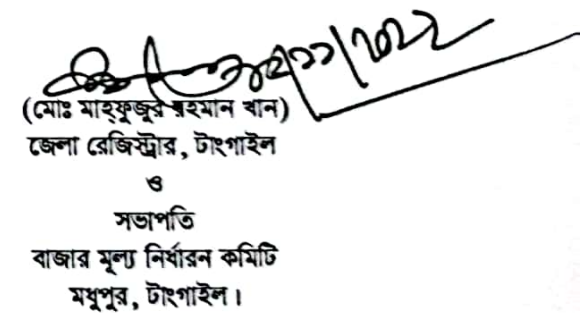 (মোঃ মাহ্ফুজুর রহমান খান)
জেলা রেজিস্ট্রার, টাংগাইল
ও
সভাপতি
বাজার মূল্য নির্ধারন কমিটি
মধুপুর, টাংগাইল।